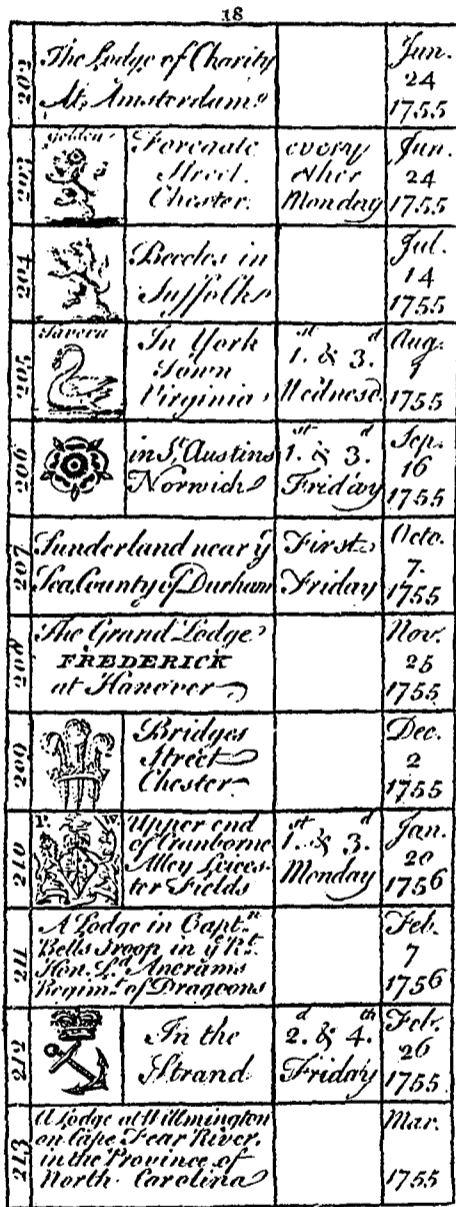 18
202
The Lodge of Charity
At Amsterdam
Jun.
24
1755
203
Golden
Foregate
Street.
Chester.
every
other
Monday
Jun.
24
1755
204
Beccles in
Suffolk
Jul.
14
1755
205
Tavern
In York
Town
Virginia
1.st & 3.d
Wednesd.
Aug.
1
1755
206
in St. Austins
Norwich
1.st & 3.d
Friday
Sep.
16
1755
207
Sunderland near ye
Sea, County of Durham
First
Friday
Octo.
7.
1755
208
The Grand Lodge
FREDERICK
at Hanover
Nov.
25
1755
209
Bridges
Street
Chester
Dec.
2
1755
210
Upper end
of Cranborne
Alley Leices-
ter Fields
1.st & 3.d
Monday
Jan.
20
1756
211
A Lodge in Capt.n
Bells Troop in ye Rt.
Hon. Ld. Ancrams
Regimt. of Dragoons
Feb.
7
1756
212
In the
Strand
2.d & 4.th
Friday
Feb.
26
1755
213
A Lodge at Willmington
on Cape Fear River,
in the Province of
North Carolina
Mar.
1755